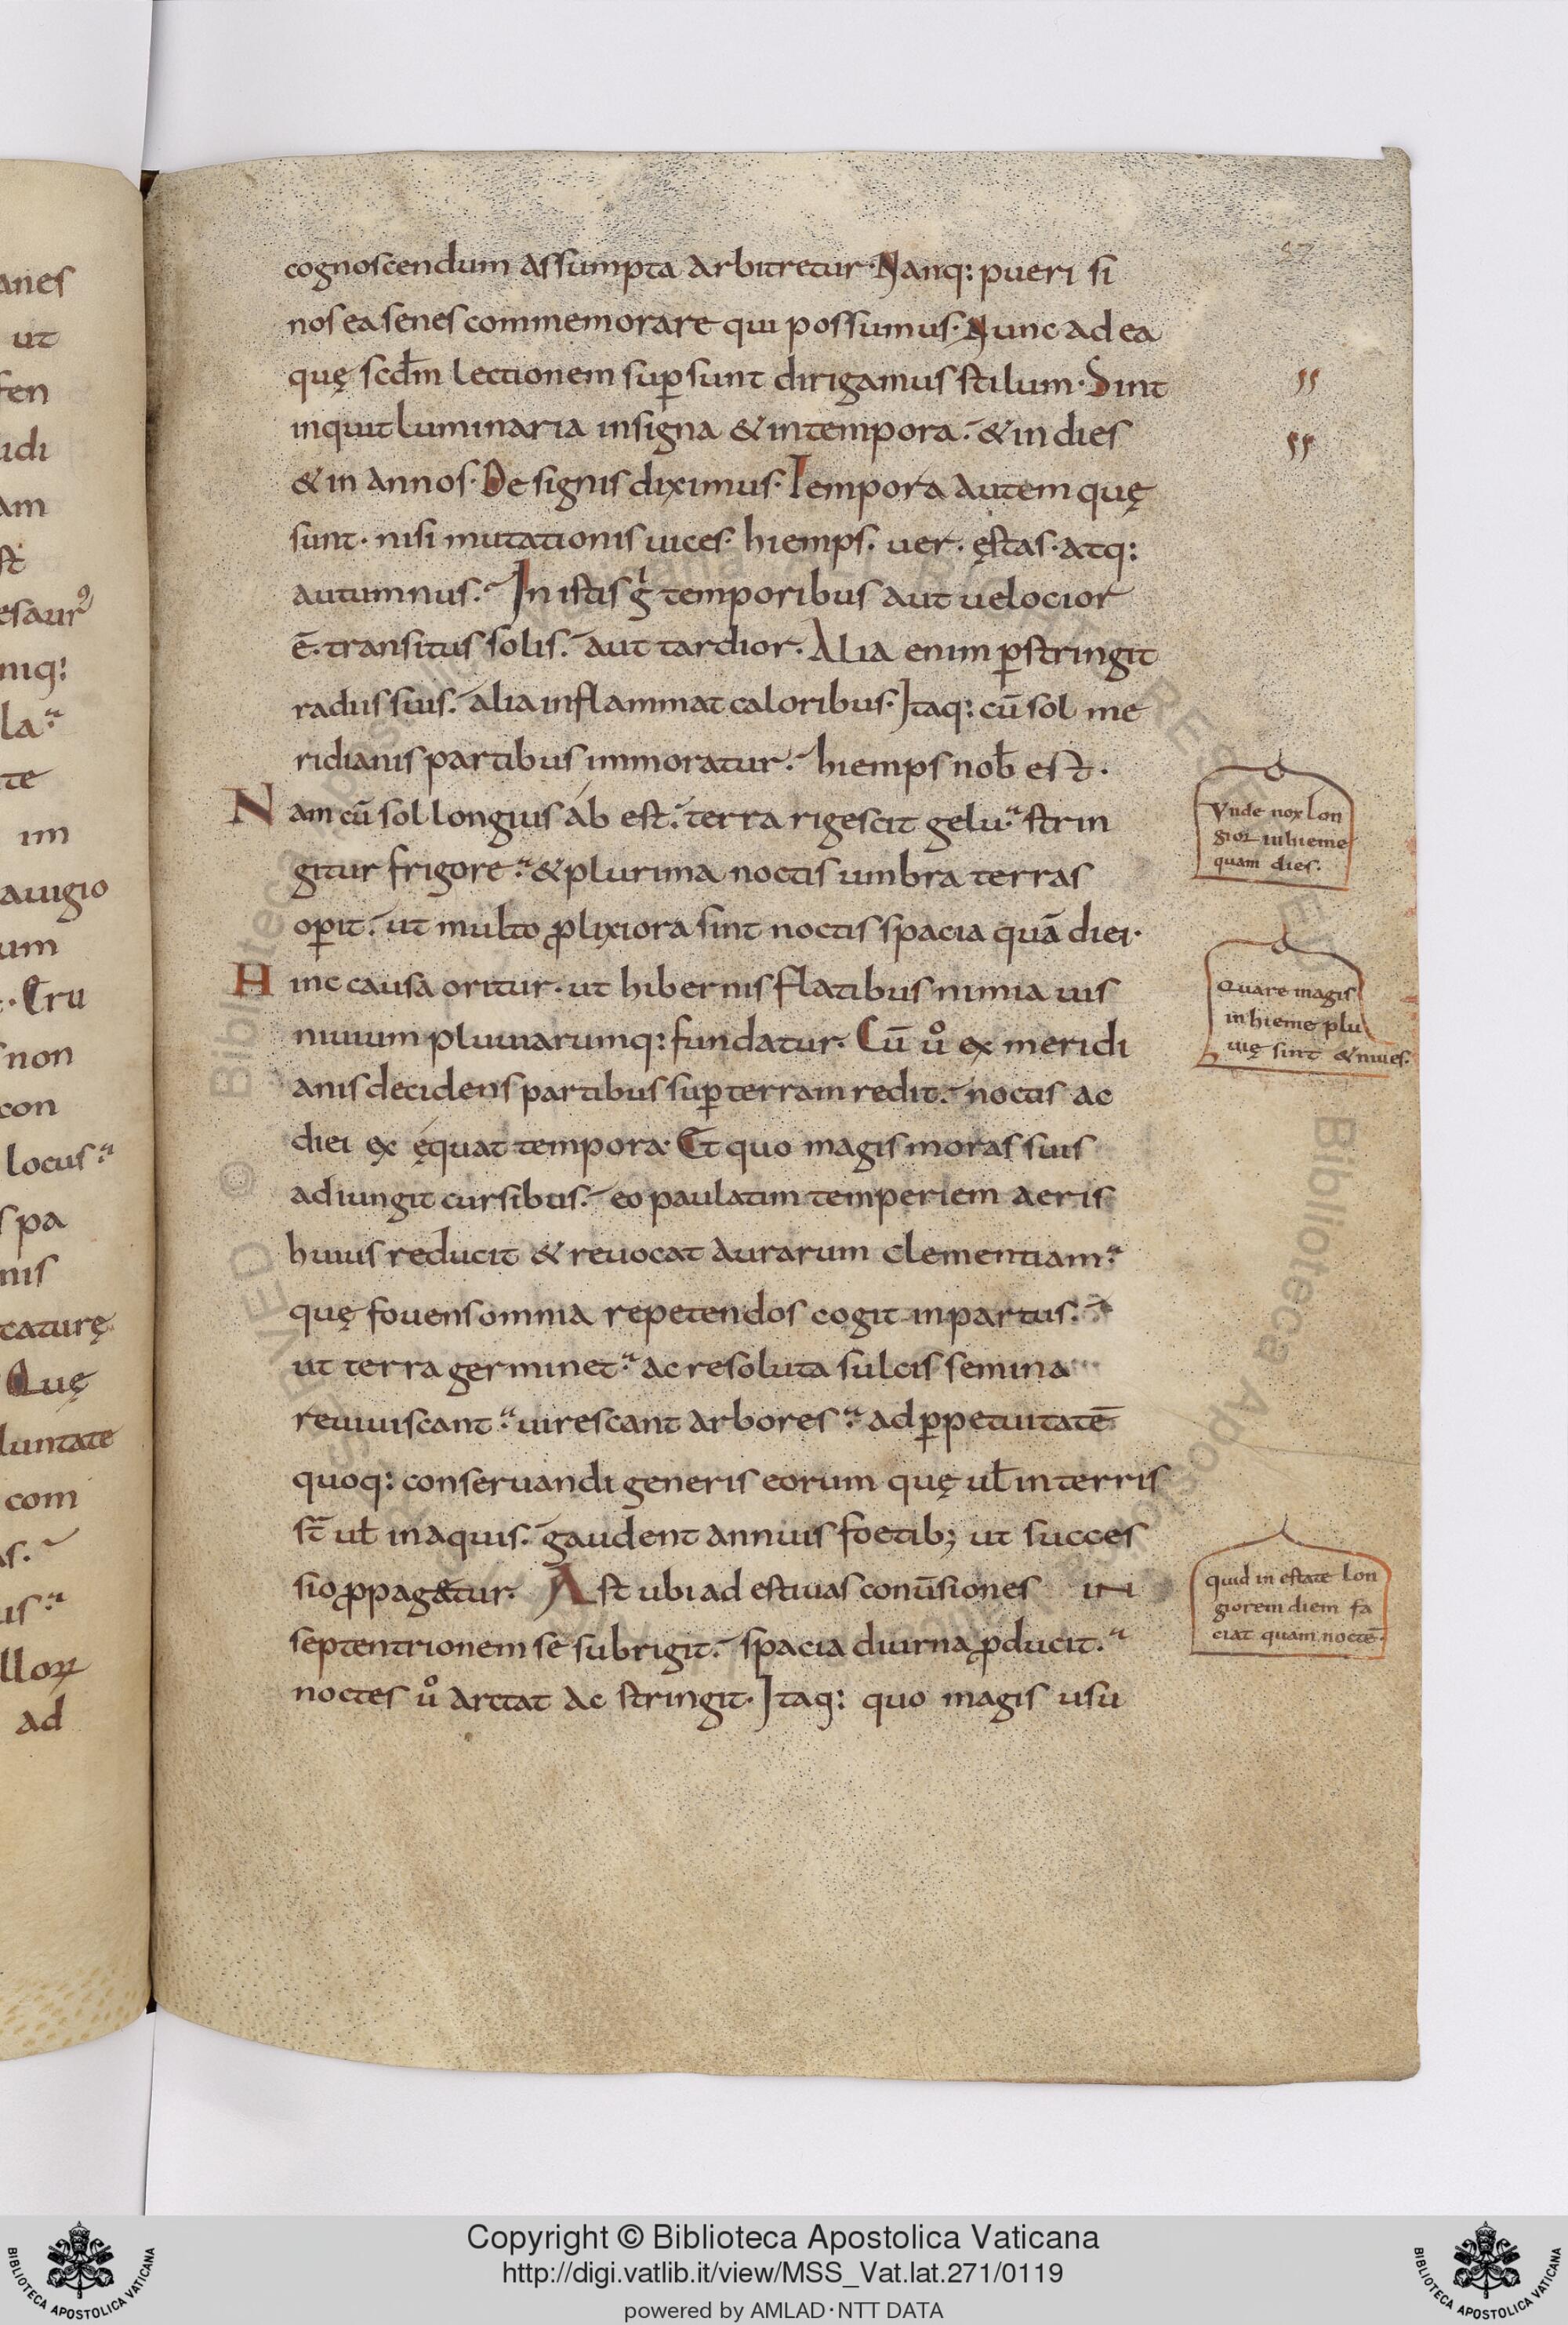 cognoscendum assumpta arbitretur. Nanq: pueri si
nos ea senes commemorare qui possumus. Nunc ad ea
quę scdm̄ lectionem sup̄sunt dirigamus stilum. Sint
inquit luminaria in signa & in tempora. & in dies
& in annos. De signis diximus. Tempora autem quę
sunt. nisi mutationis uices. hiemps. uer. ęstas. atq:
autumnus. In istis g̍ temporibus aut uelocior
ē. transitus solis. aut tardior. Alia enim p̄stringit
radiis suis. alia inflammat caloribus. Itaq: cū sol me
ridianis partibus immoratur. hiemps nob̄ est.
Nam cū sol longius áb est. terra rigescit gelu. strin
gitur frigore. & plurima noctis umbra terras
op̄it. ut multo ꝓlixiora sint noctis spacia quā diei.
Hinc causa oritur. ut hibernis flatibus nimia uis
niuium pluuiarumq: fundatur. Cū uͦ ex meridi
anis decidens partibus sup̄ terram redit. noctis ac
diei ex ęquat tempora. Et quo magis moras suis
adiungit cursibus. eo paulatim temperiem aeris
huius reducit & reuocat aurarum clementiam.
quę fouens omnia repetendos cogit in partus.
ut terra germinet. ac resoluta sulcis semina
reuiuiscant. uirescant arbores. ad p̄petuitatē
quoq: conseruandi generis eorum quę ul̄ in terris
st̄ ul̄ in aquis. gaudent annuis foetib; ut succes
sio ꝓpagetur. Ast ubi ad estiuas conūsiones in
septentrionem se subrigit. spacia diurna ꝓducit.
noctes uͦ artat ac stringit. Itaq: quo magis usu
Vnde nox lon
gior in hieme
quam dies.
Quare magis
in hieme plu
uię sint & niues.
quid in estate lon
giorem diem fa
ciat quam noctē.
anes
ut
fen
idi
am
st
esaurꝰ
niq:
la.
te
im
auigio
um
. Cru
non
con
locus.
spa
nis
caturę
Quę
luntate
com
as.
us.
lloꝝ
ad
Copyright © Biblioteca Apostolica Vaticana
http://digi.vatlib.it/view/MSS_Vat.lat.271/0119
powered by AMLAD·NTT DATA
BIBLIOTECA APOSTOLICA VATICANA
BIBLIOTECA APOSTOLICA VATICANA